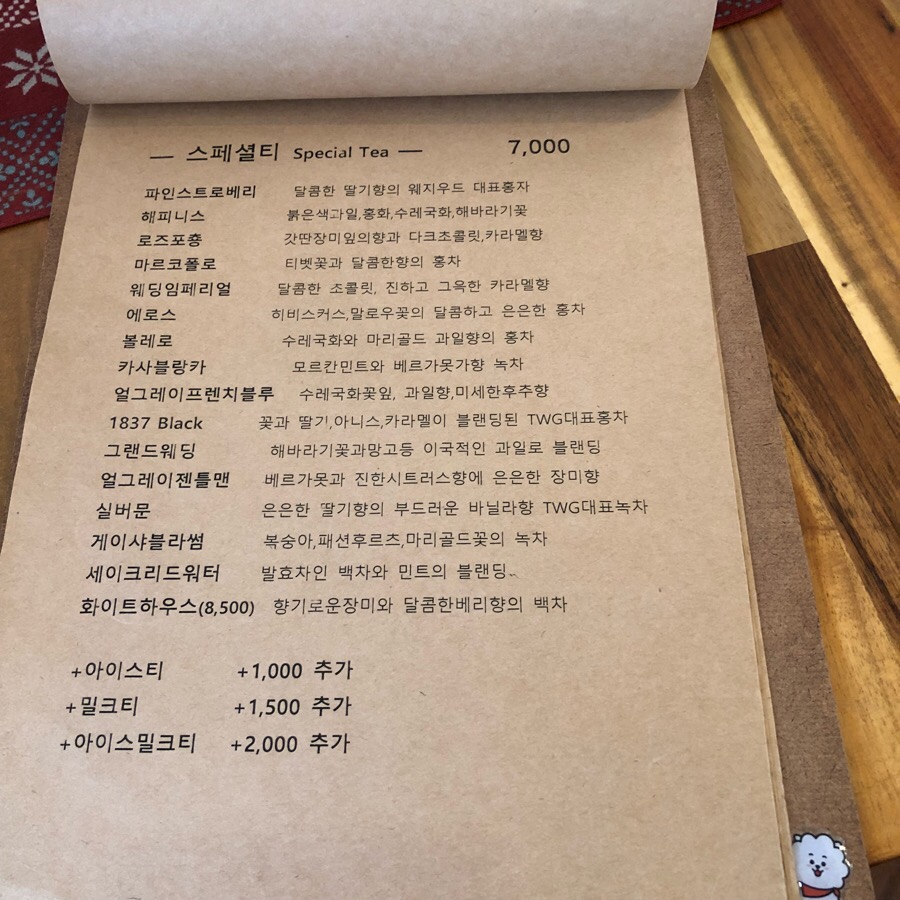 — 스페셜티 Special Tea — 7,000
파인스트로베리 달콤한 딸기향의 웨지우드 대표홍자
해피니스 붉은색과일,홍화,수레국화,해바라기꽃
로즈포춍 갓딴장미잎의향과 다크초콜릿,카라멜향
마르코폴로 티벳꽃과 달콤한향의 홍차
웨딩임페리얼 달콤한 초콜릿, 진하고 그윽한 카라멜향
에로스 히비스커스,말로우꽃의 달콤하고 은은한 홍차
볼레로 수레국화와 마리골드 과일향의 홍차
카사블랑카 모르칸민트와 베르가못가향 녹차
얼그레이프렌치블루 수레국화꽃잎, 과일향,미세한후추향
1837 Black 꽃과 딸기,아니스,카라멜이 블랜딩된 TWG대표홍차
그랜드웨딩 해바라기꽃과망고등 이국적인 과일로 블랜딩
얼그레이젠틀맨 베르가못과 진한시트러스향에 은은한 장미향
실버문 은은한 딸기향의 부드러운 바닐라향 TWG대표녹차
게이샤블라썸 복숭아,패션후르츠,마리골드꽃의 녹차
세이크리드워터 발효차인 백차와 민트의 블랜딩..
화이트하우스(8,500) 향기로운장미와 달콤한베리향의 백차
+아이스티 +1,000 추가
+밀크티 +1,500 추가
+아이스밀크티 +2,000 추가